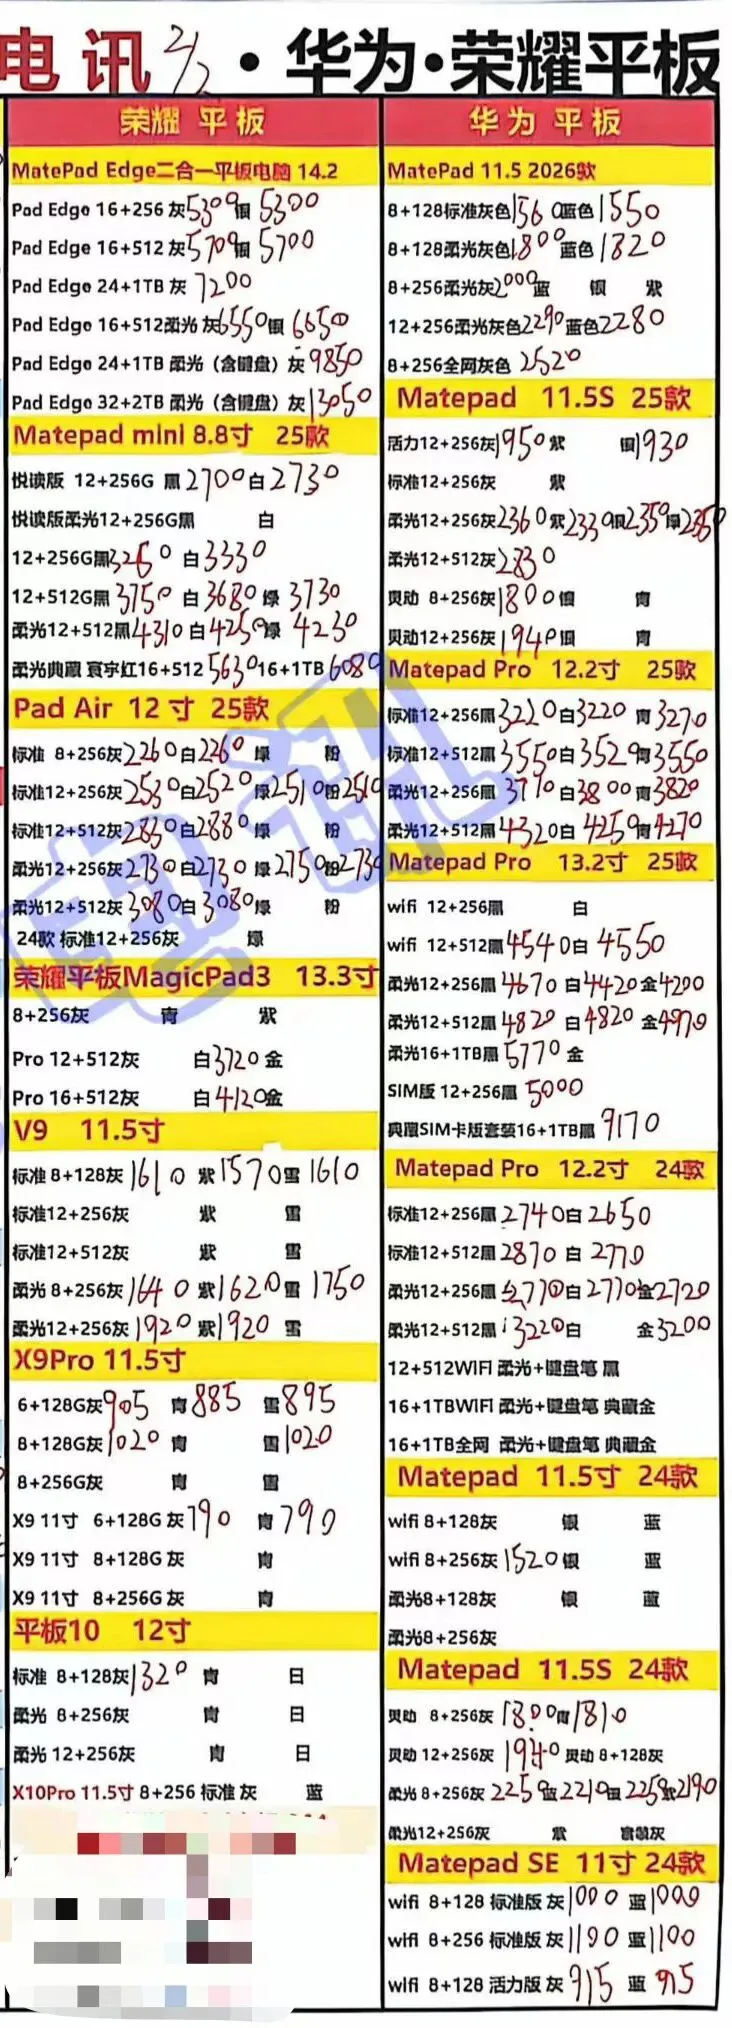 电 讯 2/2 · 华为·荣耀平板
荣耀 平板
MatePad Edge二合一平板电脑 14.2
Pad Edge 16+256 灰5300银 5300
Pad Edge 16+512 灰5700银 5700
Pad Edge 24+1TB 灰 7200
Pad Edge 16+512柔光 灰6550银 6650
Pad Edge 24+1TB 柔光（含键盘）灰 9850
Pad Edge 32+2TB 柔光（含键盘）灰13050
Matepad mini 8.8寸 25款
悦读版 12+256G 黑2700白2730
悦读版柔光12+256G黑 白
12+256G黑3260 白3330
12+512G黑 3750 白3680 绿 3730
柔光12+512黑4310 白4250绿 4230
柔光典藏 寰宇红16+512 5630 16+1TB 6080
Pad Air 12 寸 25款
标准 8+256灰2260白2260 绿 粉
标准12+256灰2530白2520 绿2510粉2510
标准12+512灰2830白2880 绿 粉
柔光12+256灰2730白2730 绿2750粉2730
柔光12+512灰3080白3080绿 粉
24款 标准12+256灰 绿
荣耀平板MagicPad3 13.3寸
8+256灰 青 紫
Pro 12+512灰 白3720金
Pro 16+512灰 白4120金
V9 11.5寸
标准 8+128灰1610 紫1570雪 1610
标准12+256灰 紫 雪
标准12+512灰 紫 雪
柔光 8+256灰1640 紫1620雪 1750
柔光12+256灰1920紫1920 雪
X9Pro 11.5寸
6+128G灰905 青885 雪895
8+128G灰1020 青 雪1020
8+256G灰 青 雪
X9 11寸 6+128G 灰790 青790
X9 11寸 8+128G 灰 青
X9 11寸 8+256G 灰 青
平板10 12寸
标准 8+128灰1320 青 日
柔光 8+256灰 青 日
柔光 12+256灰 青 日
X10Pro 11.5寸 8+256 标准 灰 蓝
华为 平板
MatePad 11.5 2026款
8+128标准灰色1560蓝色1550
8+128柔光灰色1800蓝色1820
8+256柔光灰2000蓝 银 紫
12+256柔光灰色2290蓝色2280
8+256全网灰色 2520
Matepad 11.5S 25款
活力12+256灰1950紫 银1930
标准12+256灰 紫
柔光12+256灰2360紫2330银2350绿2350
柔光12+512灰2830
灵动 8+256灰1800银 青
灵动12+256灰1940银 青
Matepad Pro 12.2寸 25款
标准12+256黑3220白3220 青3270
标准12+512黑3550白3520青3550
柔光12+256黑3770白3800青3820
柔光12+512黑4320白4250青4270
Matepad Pro 13.2寸 25款
wifi 12+256黑 白
wifi 12+512黑4540白4550
柔光12+256黑4670白4420金4200
柔光12+512黑4820 白4820 金4970
柔光16+1TB黑5770 金
SIM版 12+256黑 5000
典藏SIM卡版套装16+1TB黑 9170
Matepad Pro 12.2寸 24款
标准12+256黑2740白2650
标准12+512黑2870白2770
柔光12+256黑2770白2770金2720
柔光12+512黑3220白 金3200
12+512WIFI 柔光+键盘笔 黑
16+1TBWIFI 柔光+键盘笔 典藏金
16+1TB全网 柔光+键盘笔 典藏金
Matepad 11.5寸 24款
wifi 8+128灰 银 蓝
wifi 8+256灰1520银 蓝
柔光8+128灰 银 蓝
柔光8+256灰
Matepad 11.5S 24款
灵动 8+256灰1800青1810
灵动 12+256灰1940 灵动 8+128灰
柔光 8+256灰 2250蓝2210银2250紫2190
柔光12+256灰 紫 官翎灰
Matepad SE 11寸 24款
wifi 8+128 标准版 灰1000 蓝1000
wifi 8+256 标准版 灰1190 蓝1100
wifi 8+128 活力版 灰 915 蓝 915
电讯